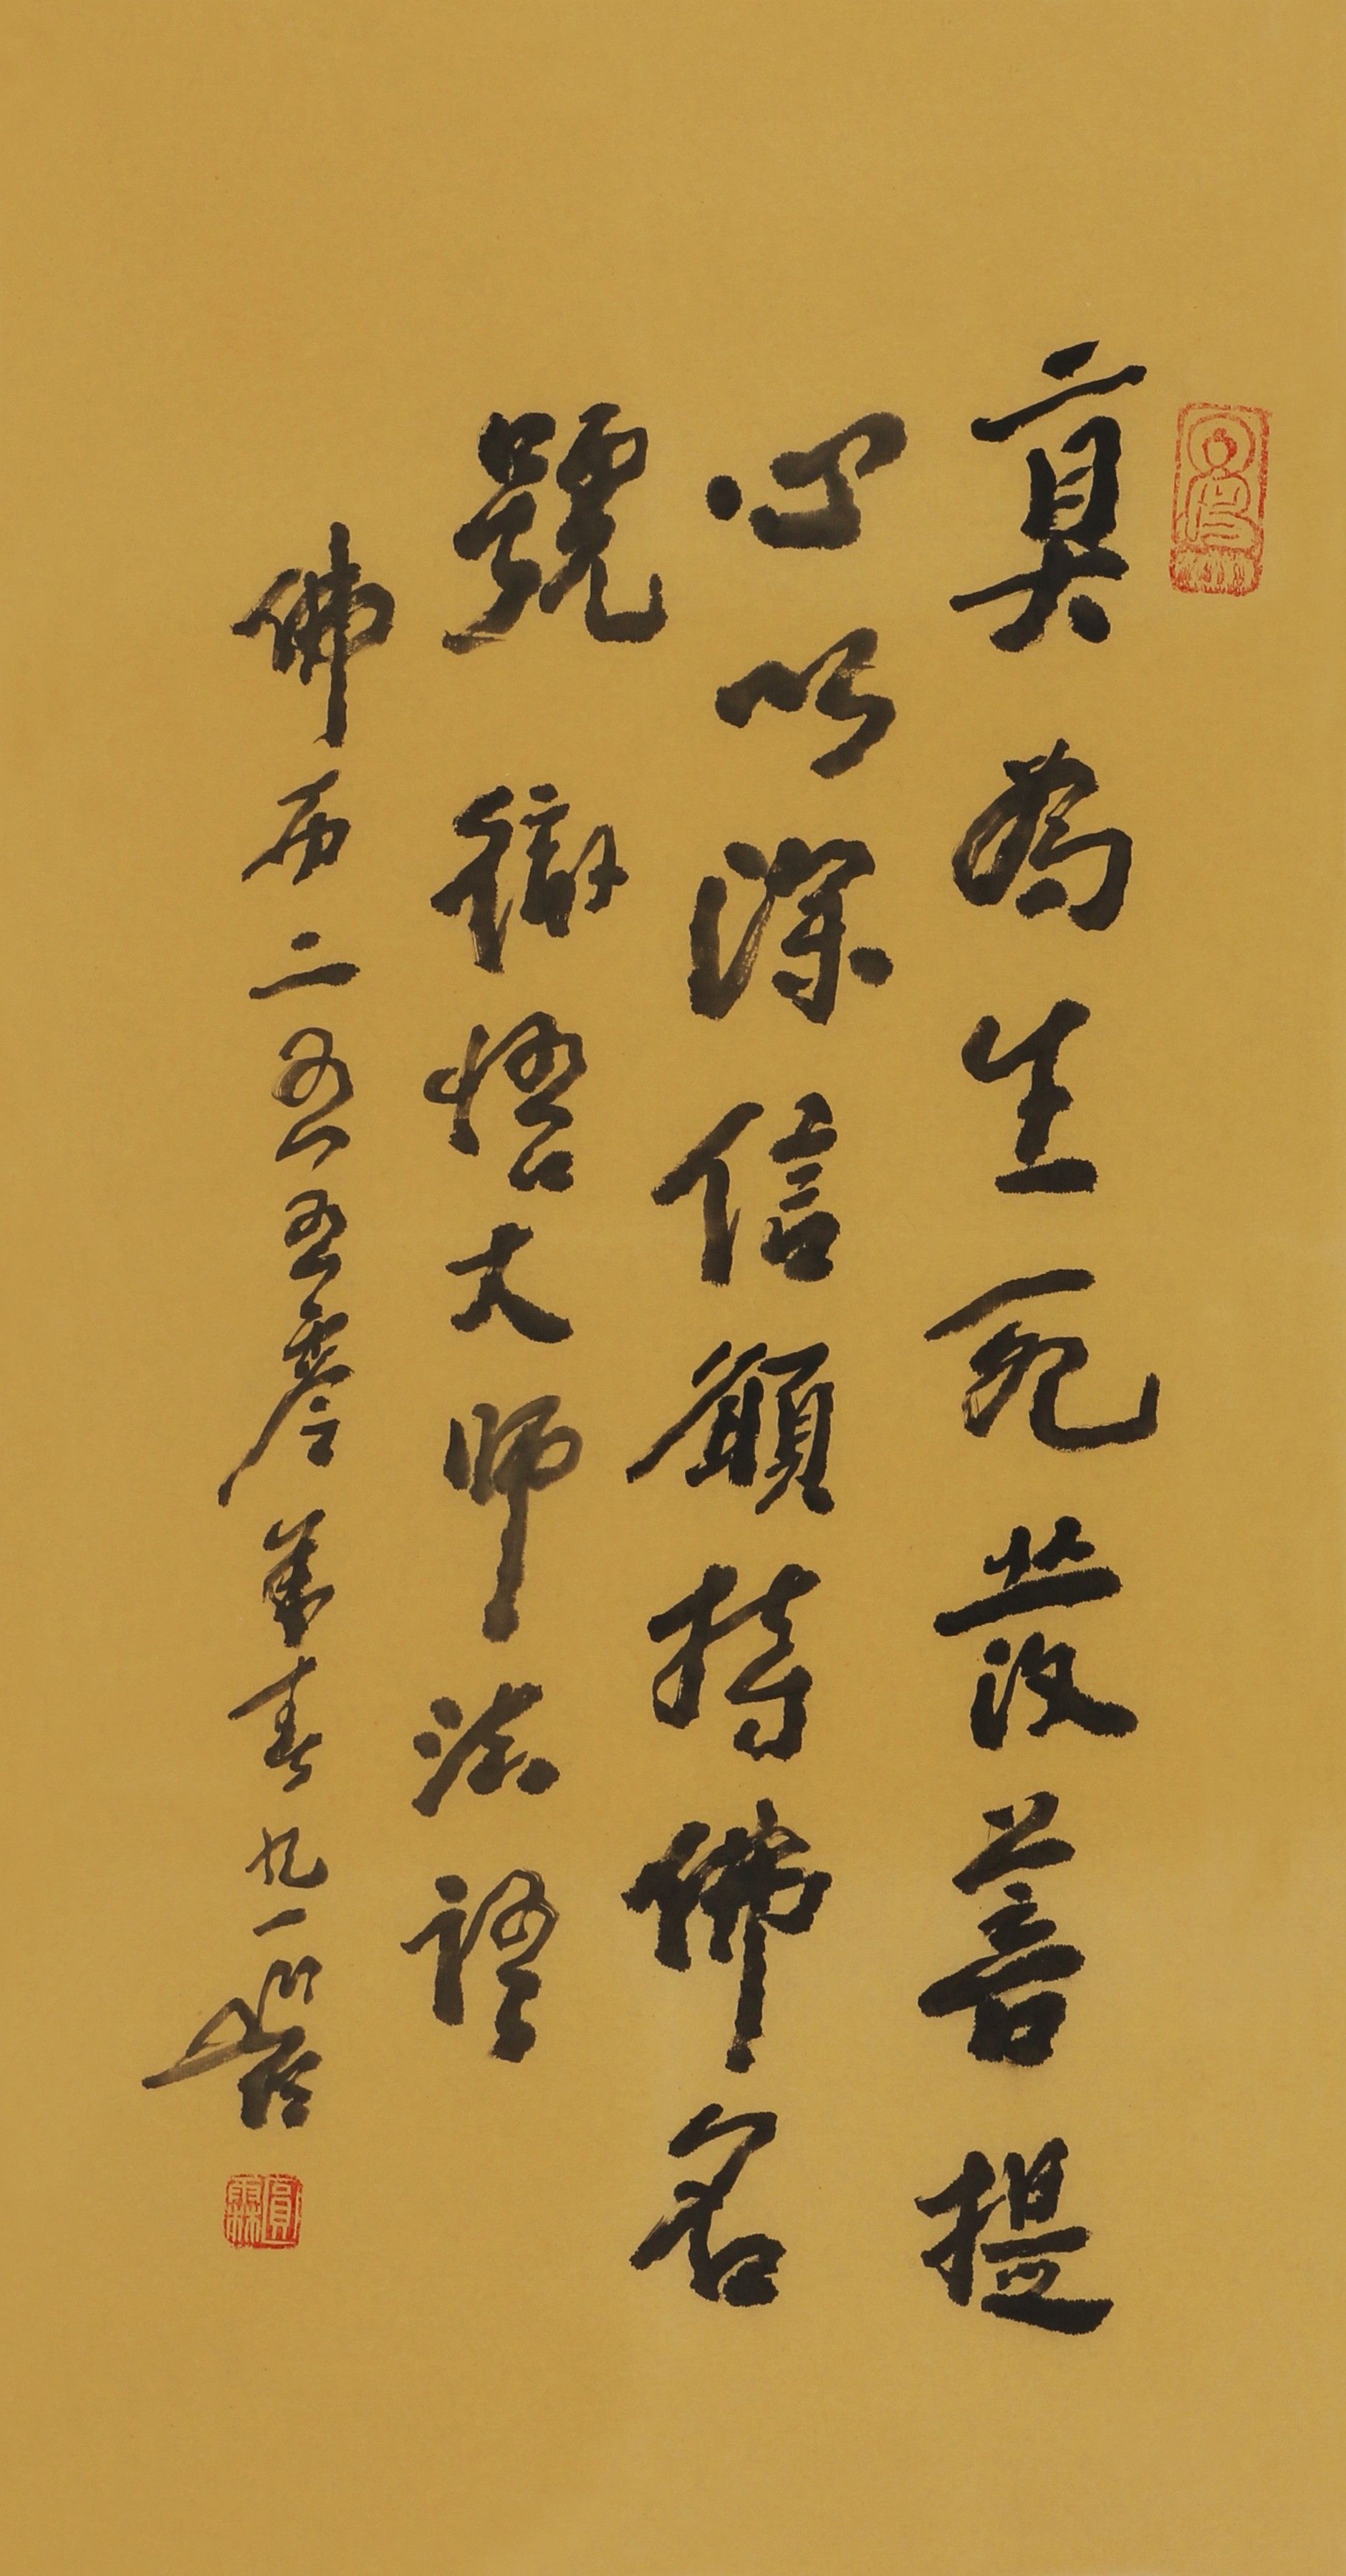 真為生死發菩提
心以深信願持佛名
號 徹悟大師法語
佛历二五五零年春九一
圓霖